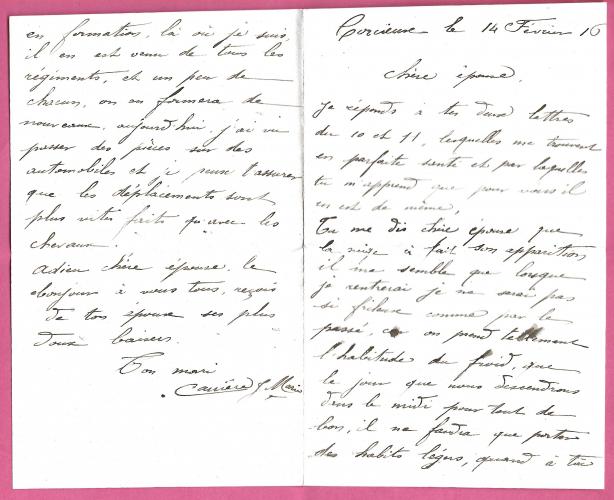 Corcieux le 14 Février 16
chère épouse.
Je réponds à tes deux lettres
du 10 et 11, lesquelles me trouvent
en parfaite santé et par lesquelles
tu m'apprend que pour vous il
en est de même,
Tu me dis chère épouse que
la neige à fait son apparition
il me semble que lorsque
je rentrerai je ne serai pas
si frileux comme par le
passé car on prend tellement
l'habitude du froid, que
le jour que nous descendrons
dans le midi pour tout de
bon, il ne faudra que porter
des habits légers, quand à toi
en formation, là où je suis,
il en est venu de tous les
régiments, et un peu de
chacun, on en formera de
nouveaux. aujourd'hui j'ai vu
passer des pièces sur des
automobiles et je peux t'assurer
que les déplacements sont
plus vites faits qu'avec les
chevaux.
adieu chère épouse, le
bonjour à vous tous, reçois
de ton époux ses plus
doux baisers.
Ton mari
Carrière J Marie